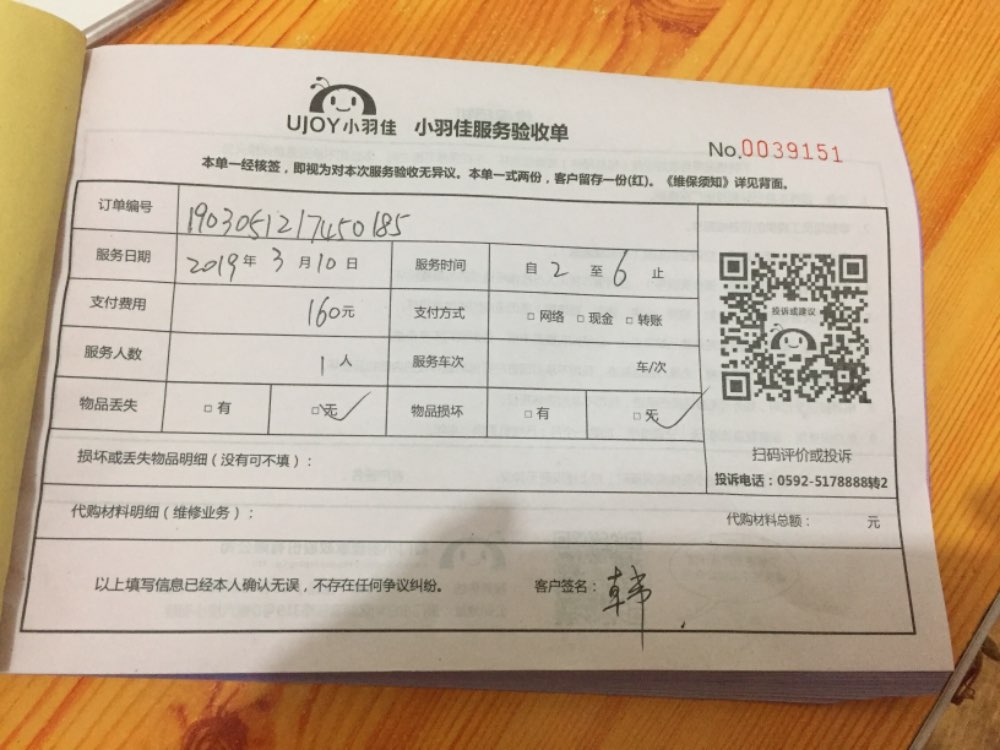 UJOY小羽佳 小羽佳服务验收单
No.0039151
本单一经核签，即视为对本次服务验收无异议。本单一式两份，客户留存一份(红)。《维保须知》详见背面。
订单编号 1903051217450185
服务日期 2019年3月10日 服务时间 自2至6止
支付费用 160元 支付方式 □网络 □现金 □转账
服务人数 1人 服务车次 车/次
物品丢失 □有 □无 物品损坏 □有 □无
投诉或建议
扫码评价或投诉
投诉电话：0592-5178888转2
损坏或丢失物品明细（没有可不填）：
代购材料明细（维修业务）： 代购材料总额： 元
以上填写信息已经本人确认无误，不存在任何争议纠纷。 客户签名：韩